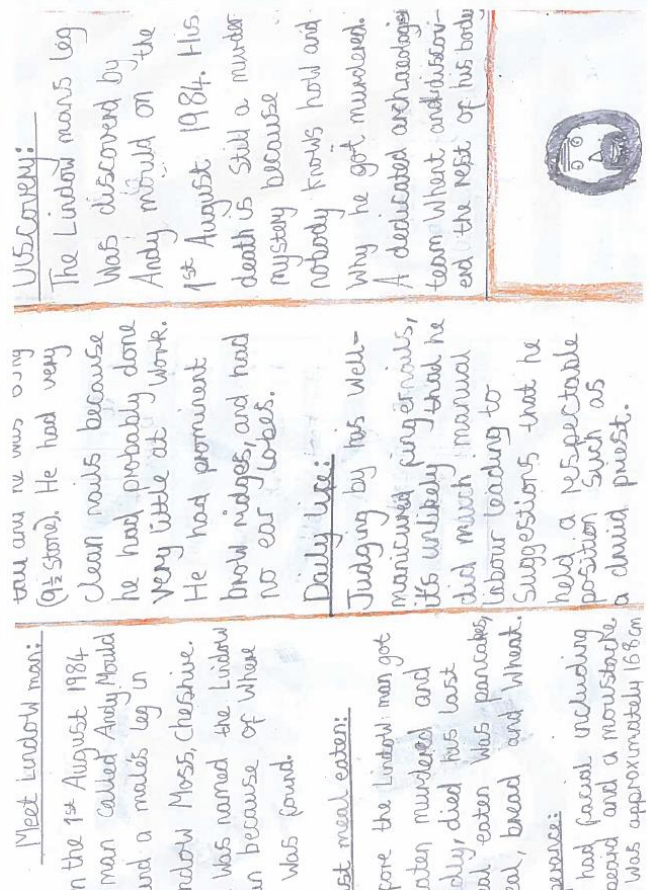 Meet Lindow man:
n the 1st August 1984
man called Andy Mould
nd a male's leg in
ndow Moss, Cheshire.
Was named the Lindow
n because of Where
Was found.
st meal eaten:
fore the Lindow man got
aten murdered and
lly, died his last
al eaten was pancakes,
al, bread and Wheat.
perance:
had facial including
beard and a moustache.
Was approximately 168cm
tall and he was
(9½ stone). He had very
clean nails because
he had probably done
very little at work.
He had prominent
brow ridges, and had
no ear lobes.
Daily life:
Judging by his well-
manicured fingernails,
it's unlikely thad he
did much manual
labour leading to
Suggestions that he
held a respectable
position such as
a druid priest.
Discovery:
The Lindow mans leg
Was discoverd by
Andy mould on the
1st August 1984. His
death is still a murder
mystery because
nobody knows how and
Why he got murdered.
A dedicated archaeologist
team Whent and discov-
erd the rest of his body